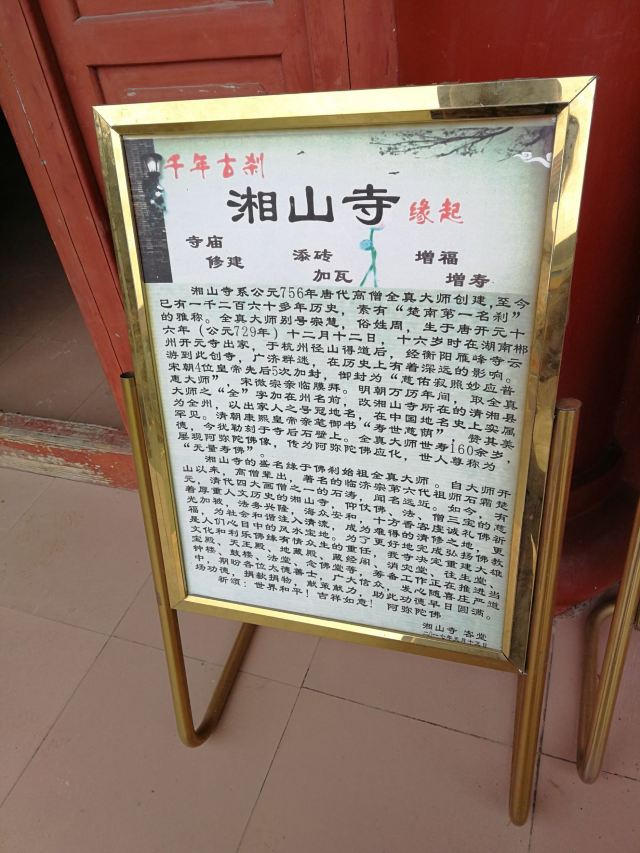 千年古刹
湘山寺 缘起
寺庙 添砖 增福
修建 加瓦 增寿
湘山寺系公元756年唐代高僧全真大师创建,至今
已有一千二百六十多年历史,素有“楚南第一名刹”
的雅称。全真大师别号宗慧,俗姓周,生于唐开元十
六年(公元729年)十二月十二日,十六岁时在湖南郴
州开元寺出家,于杭州径山得道后,经衡阳雁峰寺云
游到此创寺,广济群迷,在历史上有着深远的影响。
宋朝4位皇帝先后5次加封,御封为“慈佑寂照妙应普
惠大师”,宋微宗亲临膜拜。明朝万历年间,取全真
大师之“全”字加在州名前,改湘山寺所在的清湘县
为全州,以出家人之号冠地名,在中国地名史上实属
罕见。清朝康熙皇帝亲笔御书“寿世慈荫”赞其美
德,今犹勒刻于寺后石壁上。全真大师世寿160余岁,
屡现阿弥陀佛像,传为阿弥陀佛应化,世人尊称为
“无量寿佛”。
湘山寺的盛名缘于佛刹始祖全真大师。自大师开
山以来,高僧辈出,著名的临济宗第六代祖师石霜楚
元,清代四大画僧之一的石涛,闻名远近。如今,有
着厚重人文历史的湘山寺,仰仗佛、法、僧三宝的慈
光加被,法务兴隆,海众安和,十方香客虔诚礼佛祈
福,为社会和谐注入清流,成为难得的清修之地,更
是人们心目中的风水宝地。为了更好地完成弘扬佛教
文化和利乐佛缘有情众生的重任,我寺决定重建大雄
宝殿、天王殿、地藏殿、藏经阁、消灾堂、往生堂、
钟楼、鼓楼、法堂、念佛堂等,筹备工作正在推进当
中,期盼各位大德善士,广大信众发心随喜庄严道
场功德,捐献捐物,献策献力,助此功德早日圆满。
祈颂:世界和平!吉祥如意!阿弥陀佛
湘山寺 客堂